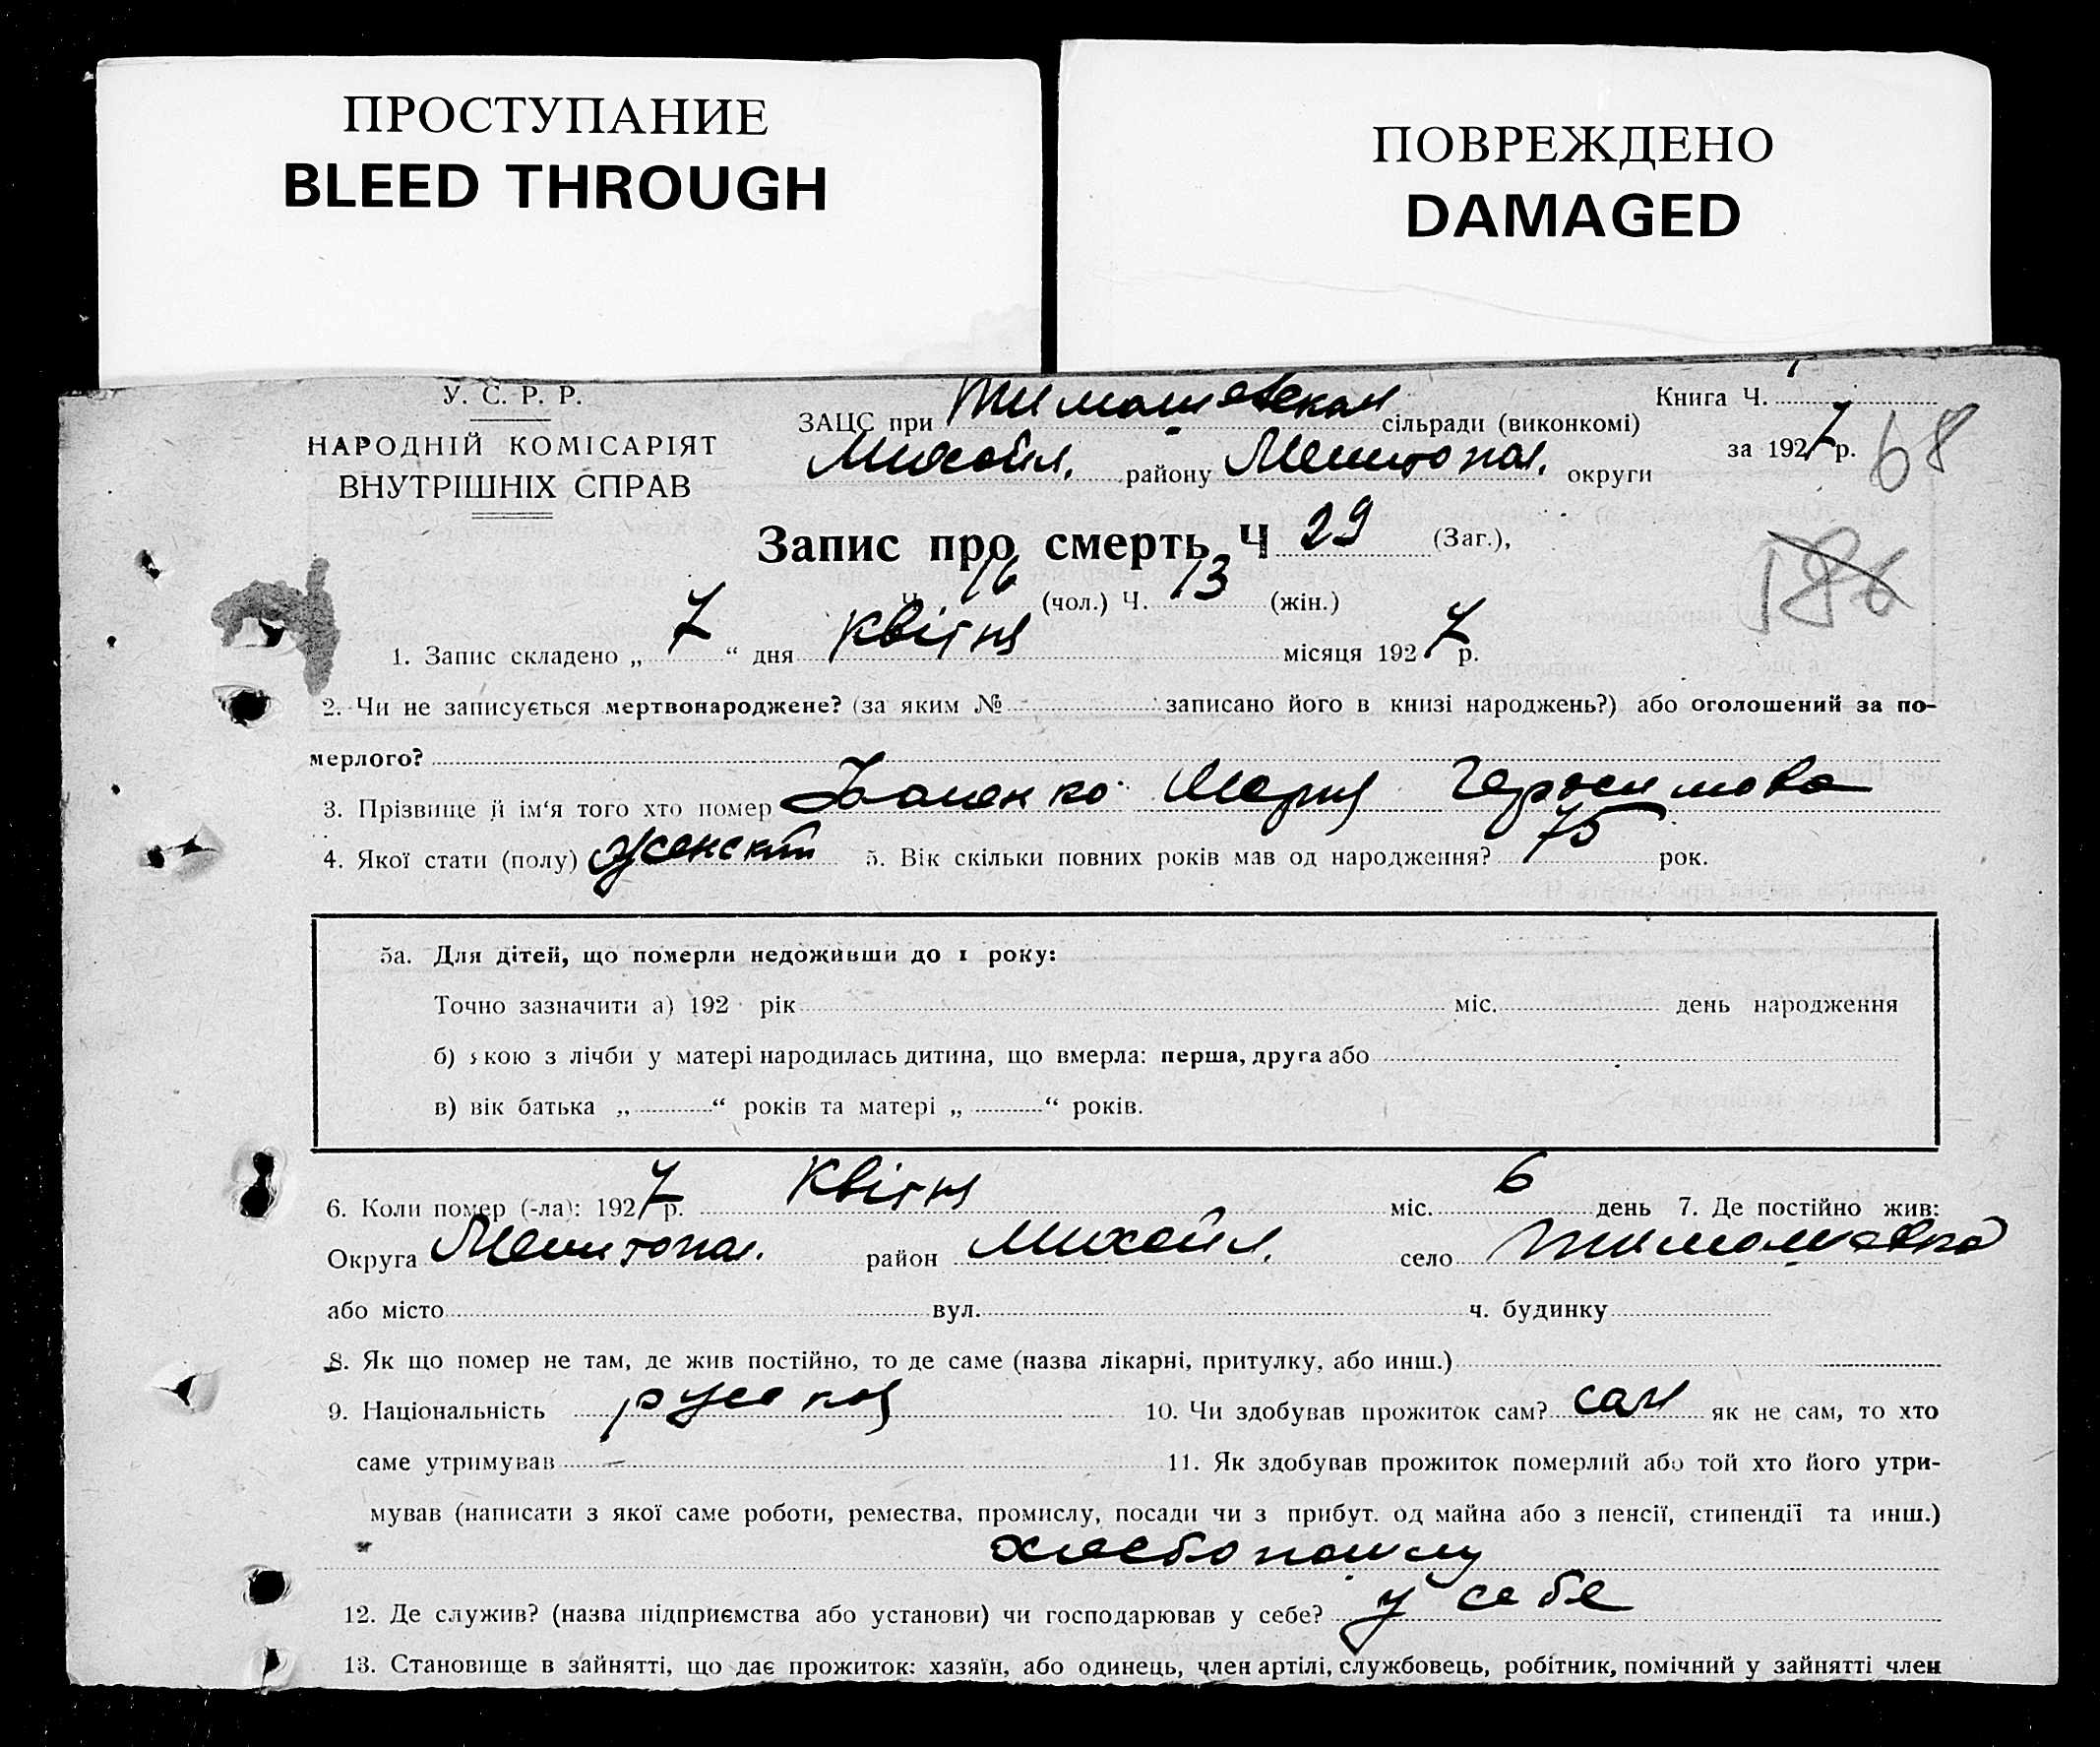 ПРОСТУПАНИЕ
BLEED THROUGH
ПОВРЕЖДЕНО
DAMAGED
У. С. Р. Р.
НАРОДНІЙ КОМІСАРІЯТ
ВНУТРІШНІХ СПРАВ
ЗАЦС при Тимошевская сільради (виконкомі)
Михайл. району Мелитопол. округи
Книга Ч.
за 1927 р.
68
186
Запис про смерть Ч 29 (Заг.),
Ч. 16 (чол.) Ч. 13 (жін.)
1. Запис складено „ 7 “ дня Квітня місяця 1927 р.
2. Чи не записується мертвонароджене? (за яким № записано його в книзі народжень?) або оголошений за по-
мерлого?
3. Прізвище й ім‘я того хто помер Мария Герасимова
4. Якої стати (полу) женск 5. Вік скільки повних років мав од народження? 75 рок.
5а. Для дітей, що померли недоживши до 1 року:
Точно зазначити а) 192 рік міс. день народження
б) якою з лічби у матері народилась дитина, що вмерла: перша, друга або
в) вік батька „ “ років та матері „ “ років.
6. Коли помер (-ла): 1927 р. Квітня міс. 6 день 7. Де постійно жив:
Округа Мелитопол. район Михайл. село Тимошевка
або місто вул. ч. будинку
8. Як що помер не там, де жив постійно, то де саме (назва лікарні, притулку, або инш.)
9. Національність руская 10. Чи здобував прожиток сам? сам як не сам, то хто
саме утримував — 11. Як здобував прожиток померлий або той хто його утри-
мував (написати з якої саме роботи, ремества, промислу, посади чи з прибут. од майна або з пенсії, стипендії та инш.)
12. Де служив? (назва підприємства або установи) чи господарював у себе? у себе
13. Становище в зайнятті, що дає прожиток: хазяїн, або одинець, член артілі, службовець, робітник, помічний у зайнятті член